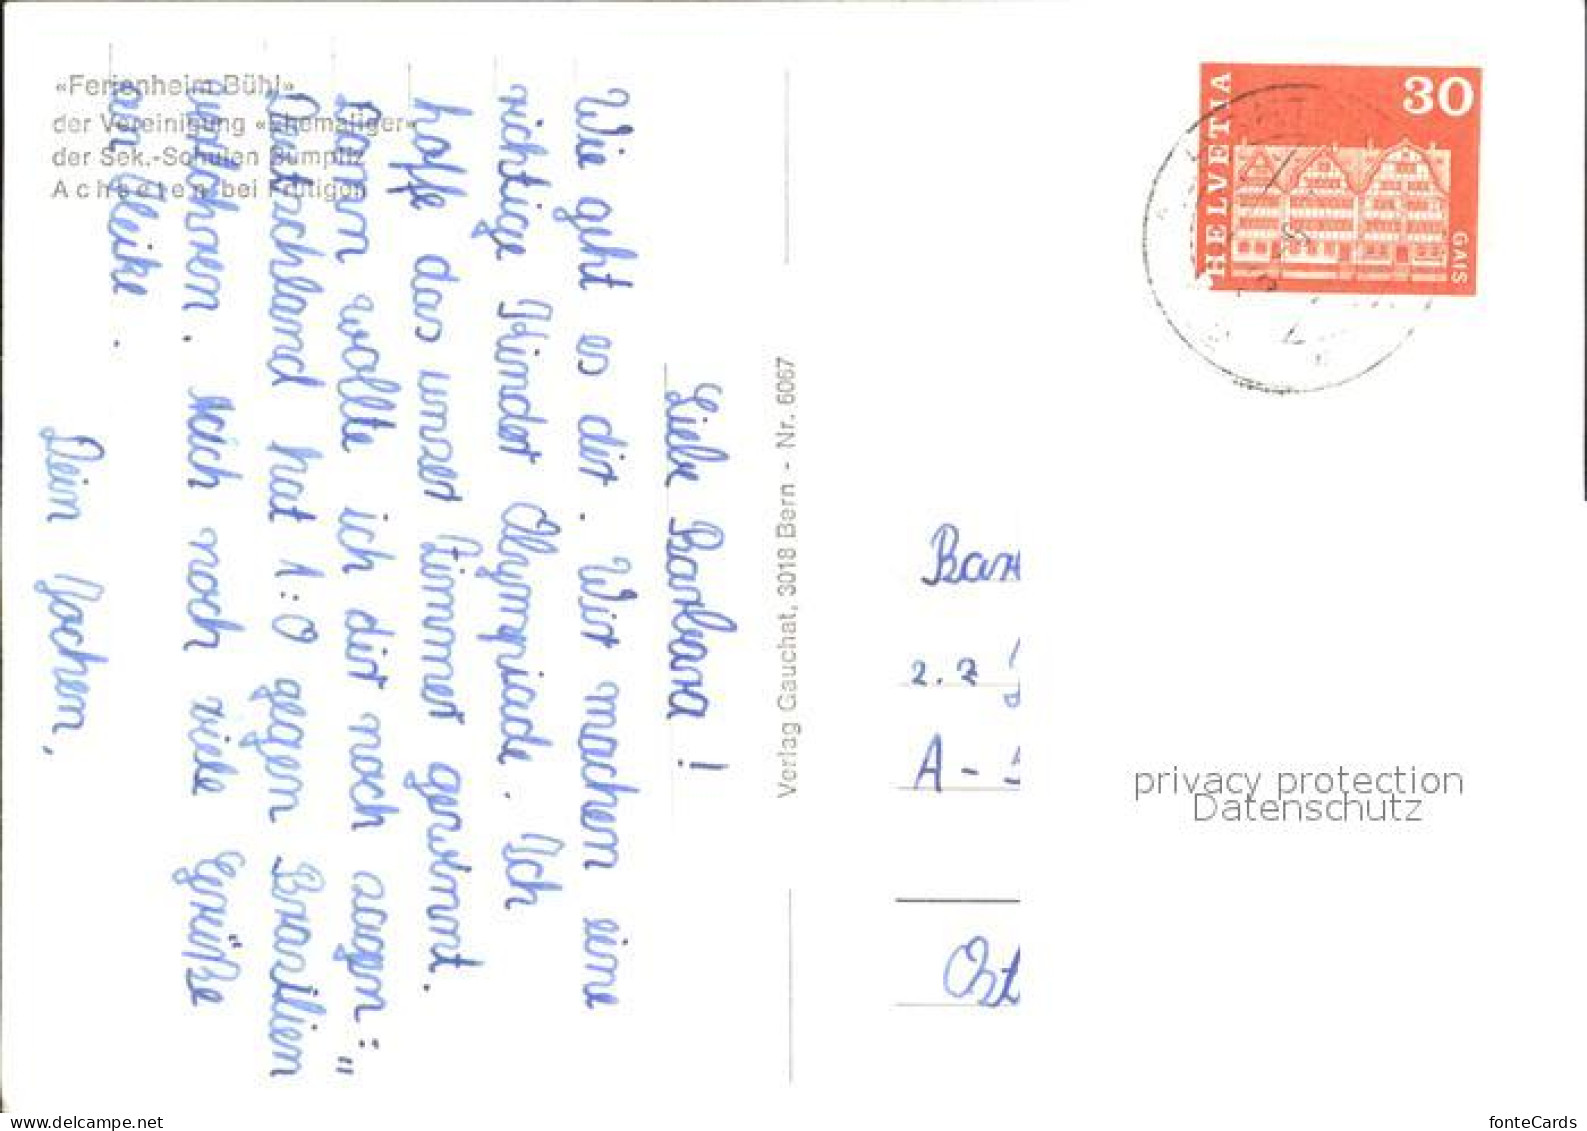 «Ferienheim Bühl»
der Vereinigung «Ehemaliger»
der Sek.-Schulen Bümpliz
Achseten bei Frutigen
Liebe Barbara!
Wie geht es dir. Wir machen eine
richtige Kinder Olympiade. Ich
hoffe das unser Zimmer gewinnt.
Dann wollte ich dir noch sagen:"
Deutschland hat 1:0 gegen Brasilien
verlohren. Nach noch viele Grüße
an Heike.
Dein Jochem,
Verlag Gauchat, 3018 Bern - Nr. 6067
HELVETIA
30
GAIS
Bar
2.Z
A-
Öst
privacy protection
Datenschutz
www.delcampe.net
fonteCards